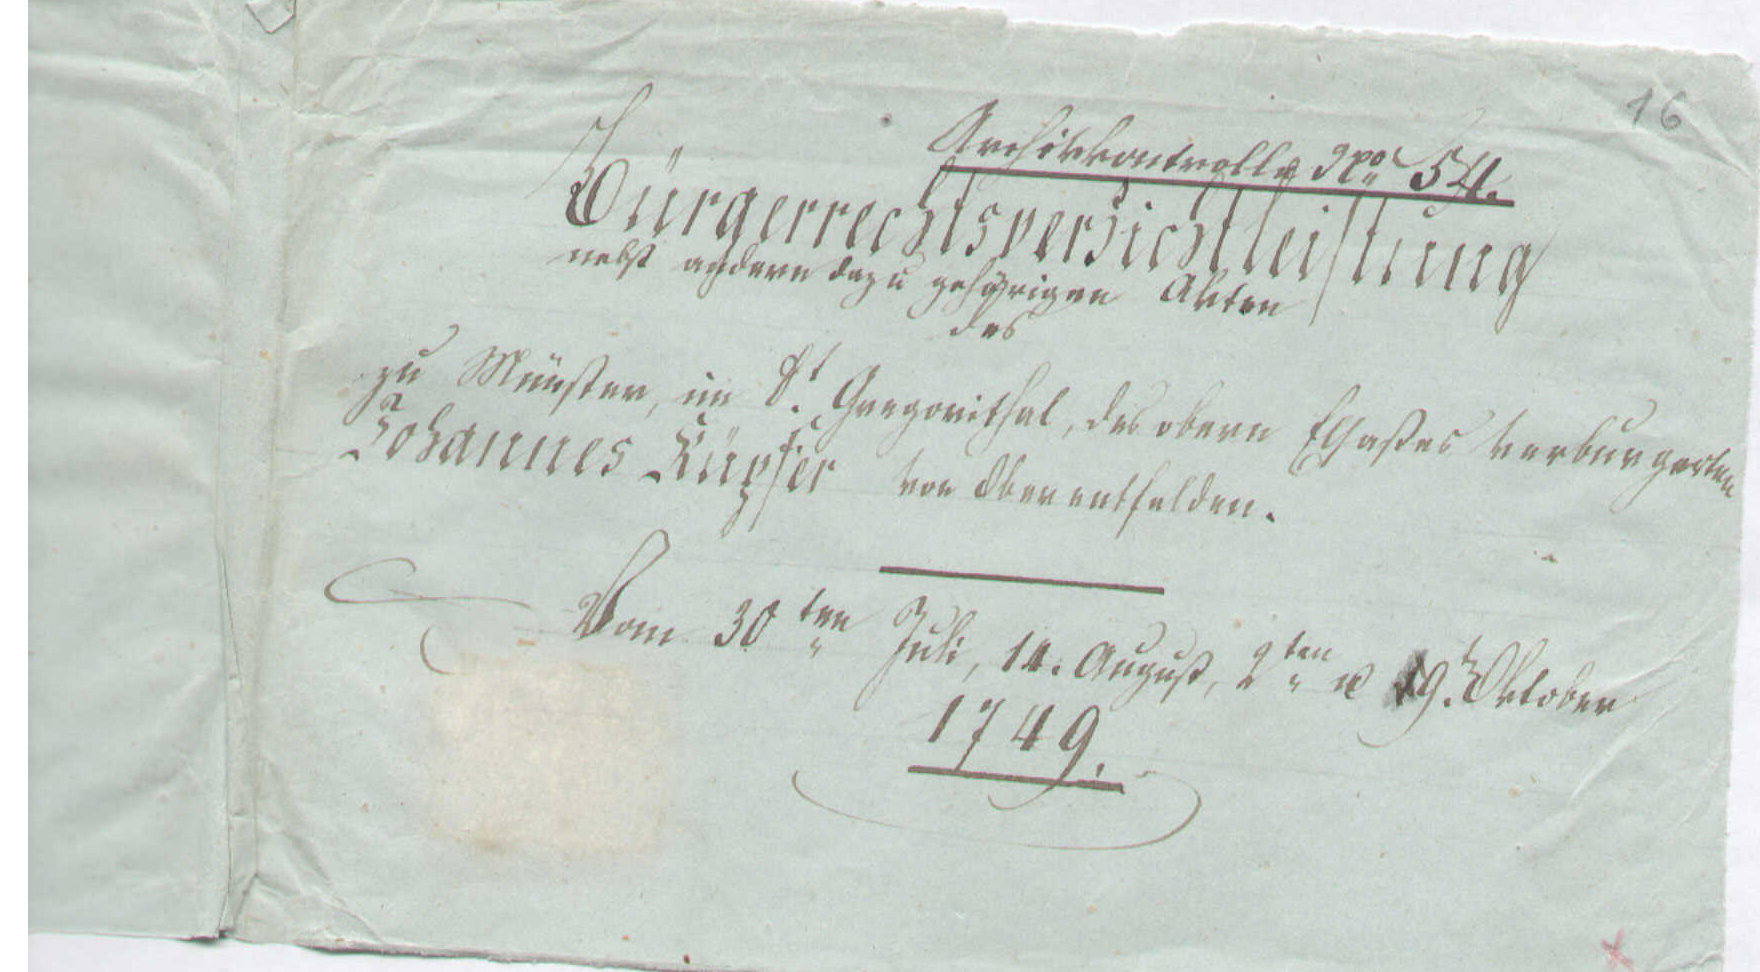 16
Archivkontrolle No 54.
Bürgerrechtsverzichtleistung
nebst andern dazu gehörigen Akten
des
zu Münster, im St. Gregorithal, des obern Elsaßes verburgerten
Johannes Küpfer von Oberentfelden.
Vom 30ten Juli, 14. August, 2ten u 19. Oktober
1749.